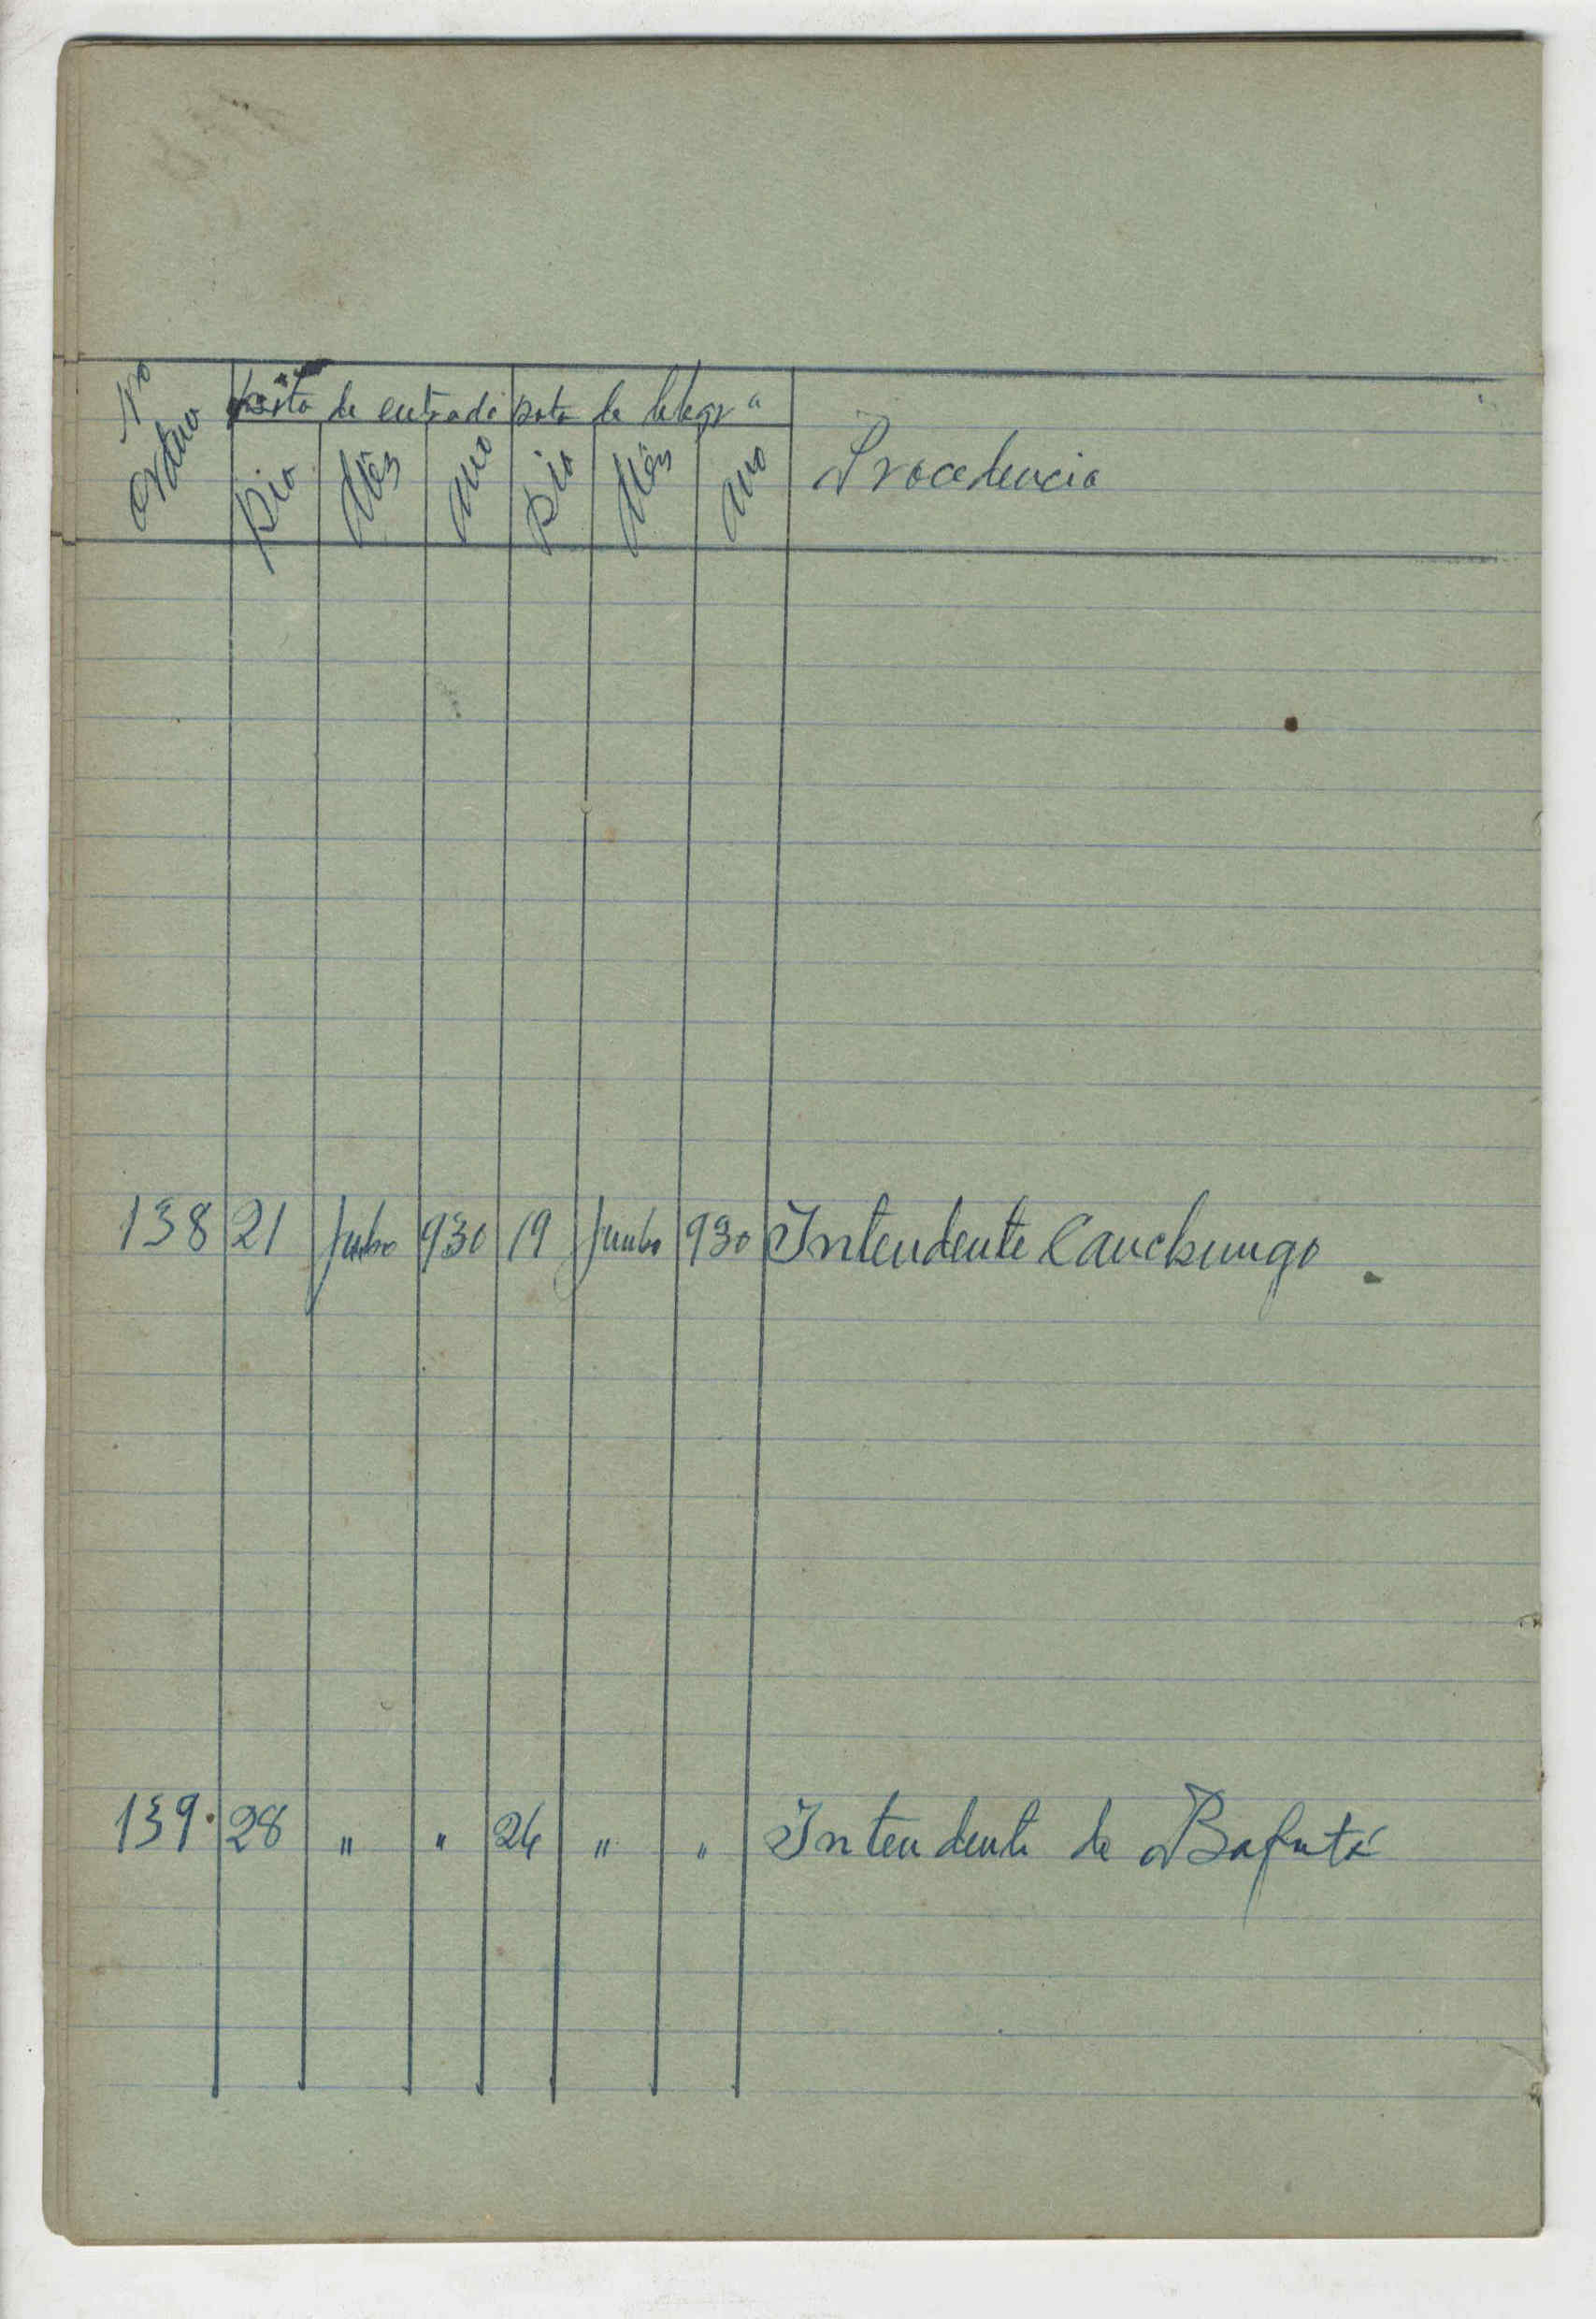 Nº Ordem Data de entrada Data de telegrª Procedencia
Dia Mês Ano Dia Mês Ano
138 21 Junho 930 19 Junho 930 Intendente Canchungo
139 28 " " 26 " " Intendente de Bafatá